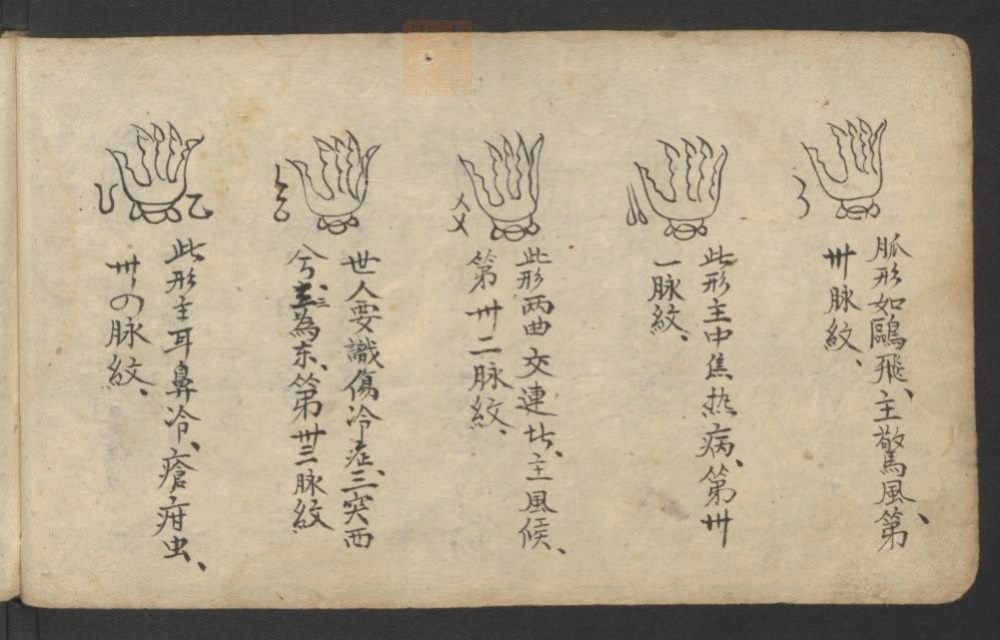 脈形如鷗飛、主驚風、第
卅脉紋、
此形主中焦热病、第卅
一脉紋、
此形两曲交連此、主風候、
第卅二脉紋、
世人要識傷冷症、三突西
兮主三為东、第卅三脉紋
此形主耳鼻冷、瘡疳虫、
卅の脉紋、